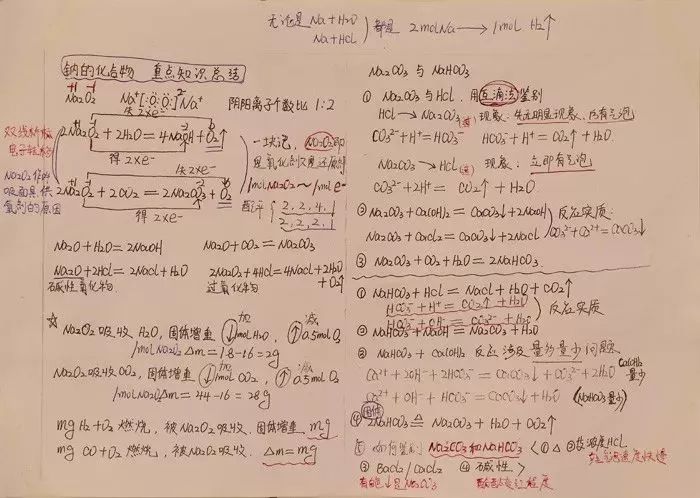 无论是 Na+H2O
Na+HCl
都是 2molNa⟶1mol H2↑
钠的化合物 重点知识总结
+1 -1
Na2O2 Na+[:Ö:Ö:]2-Na+ 阴阳离子个数比 1:2
失2×e-
2Na2O2+2H2O=4NaOH+O2↑
得2×e-
失2×e-
2Na2O2+2CO2=2Na2CO3+O2
得2×e-
双线桥标电子转移
Na2O2作呼吸面具供氧剂的原因
一块记, Na2O2即是氧化剂又是还原剂
1molNa2O2~1mole-
配平 { 2,2,4,1
2,2,2,1
Na2O+H2O=2NaOH Na2O+CO2=Na2CO3
Na2O+2HCl=2NaCl+H2O 2Na2O2+4HCl=4NaCl+2H2O+O2↑
碱性氧化物 过氧化物
☆ Na2O2吸收 H2O, 固体增重 加 ↓1molH2O, 减 ↑0.5molO2
1molNa2O2 △m=18-16=2g
Na2O2吸收CO2, 固体增重 加 ↓1molCO2, 减 ↑0.5molO2
1molNa2O2△m=44-16=28g
mg H2+O2燃烧, 被Na2O2吸收, 固体增重 mg
mg CO+O2燃烧, 被Na2O2吸收. △m=mg
Na2CO3与NaHCO3
① Na2CO3与HCl. 用互滴法鉴别
HCl⟶Na2CO3 现象: 先无明显现象, 后有气泡
CO3²⁻+H+=HCO3- HCO3-+H+=CO2↑+H2O
Na2CO3⟶HCl 现象: 立即有气泡
CO3²⁻+2H+=CO2↑+H2O
②Na2CO3+Ca(OH)2=CaCO3↓+2NaOH
反应实质:
Na2CO3+CaCl2=CaCO3↓+2NaCl
CO3²⁻+Ca²⁺=CaCO3↓
③ Na2CO3+CO2+H2O=2NaHCO3
① NaHCO3+HCl=NaCl+H2O+CO2↑
HCO3-+H+=CO2↑+H2O
HCO3-+OH-=CO3²⁻+H2O
反应实质
② NaHCO3+NaOH=Na2CO3+H2O
② NaHCO3+Ca(OH)2 反应涉及量多量少问题
Ca²⁺+2OH-+2HCO3-=CaCO3↓+CO3²⁻+2H2O Ca(OH)2量少
Ca²⁺+OH-+HCO3-=CaCO3↓+H2O (NaHCO3量少)
固体
④ 2NaHCO3△=Na2CO3+H2O+CO2↑
⑤ 如何鉴别 Na2CO3和NaHCO3 < ① △ ②按浓度HCl
③ BaCl2/CaCl2 ④ 碱性 >
有的↓是Na2CO3